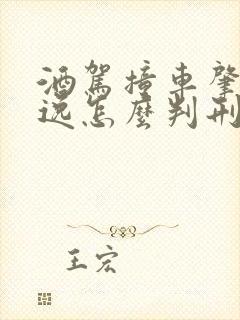 酒駕撞車肇
逸怎麼判刑
王宏